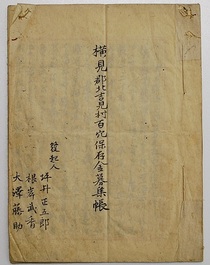 横見郡北吉見村百穴保存金募集帳
発起人
坪井正五郎
根岸武香
大澤藤助